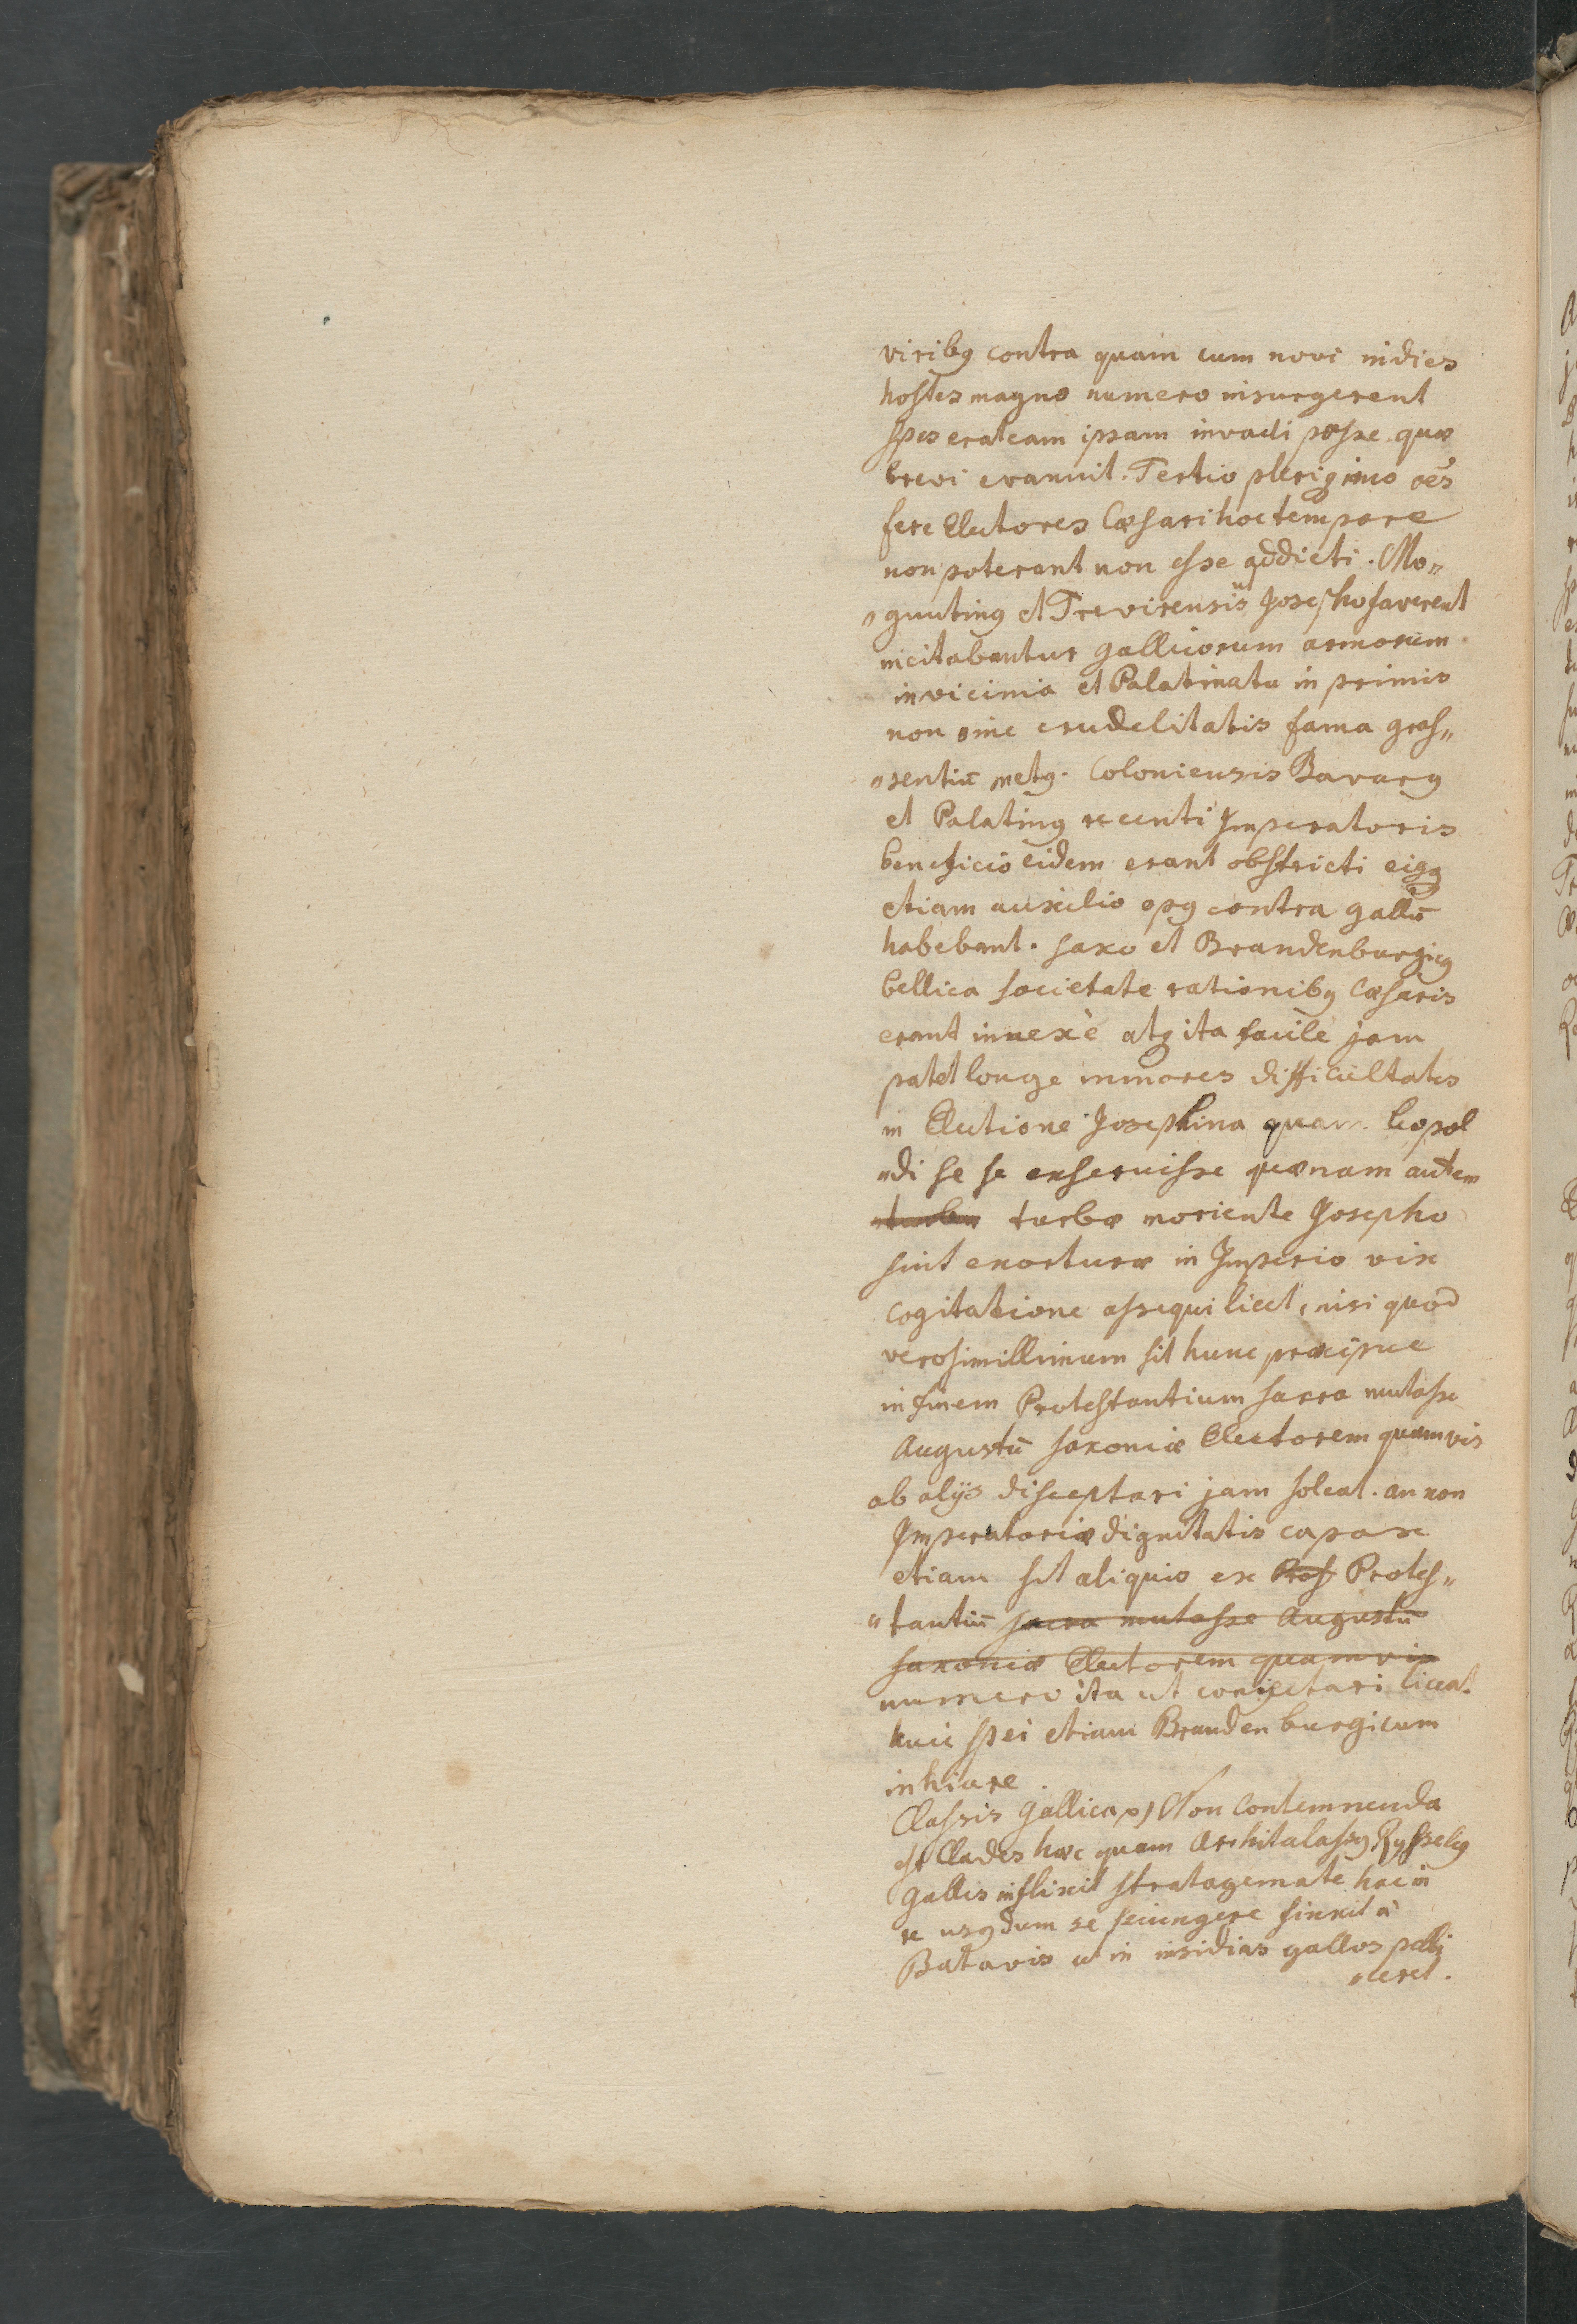 viribꝰ contra quam cum novi indies
hostes magno numero insurgerent
spes erat eam ipsam invadi posse quæ
brevi evanuit. Tertio pleriq imo oēs
fere Electores Cæsari hoc tempore
non poterant non esse addicti. Mo„
„guntinꝰ et Trevirensis ut Josepho faverent
incitabantur gallicorum armorum
in vicinia et Palatinatu in primis
non sine crudelitatis fama gras„
„sentiū metꝰ. Coloniensis Bavarꝰ
et Palatinꝰ recenti Imperatoris
beneficio eidem erant obstricti eiꝰq
etiam auxilio opꝰ contra gallū
habebant. Saxo et Brandenburgicꝰ
bellica societate rationibꝰ Cæsaris
erant innexè atq ita facilè jam
patet longe minores difficultates
in Electione Josephina quam Leopol
„di se se exseruisse quænam autem
turbæ turbæ moriente Josepho
sint exorturæ in Imperio vix
cogitatione assequi licet, nisi quod
verosimillimum sit hunc præcipue
in finem Protestantium sacra mutasse
Augustū Saxoniæ Electorem quamvis
ab alijs disceptari jam soleat. an non
Imperatoriæ dignitatis capax
etiam sit aliquis ex Prot Protes„
„tantiū sacra mutasse Augustū
Saxoniæ Electorem quamvis
numero ita ut conjectari liceat
huic spei etiam Brandenburgicum
inhiare.
Classis Gallica p) Non contemnenda
est Clades hæc quam Architalassꝰ Rysselꝰ
Gallis inflixit stratagemate hac in
re usꝰ dum se seiungere finxit à
Batavis ut in insidias gallos pelli
„ceret.